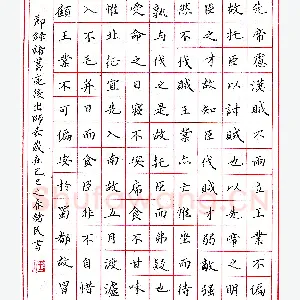 先帝慮漢賊不兩立王業不偏
故托臣以討賊也以先帝之明
臣之才故知臣伐賊才弱敵強
然不伐賊王業亦亡惟坐而待
孰與伐之是故托臣而弗疑也
受命之日寢不安席食不甘味
惟北征宜先入南故五月渡瀘
入不毛并日而食臣非不自惜
顧王業不可偏安於蜀都故冒
節錄諸葛亮後出師表歲在己巳春銘民書